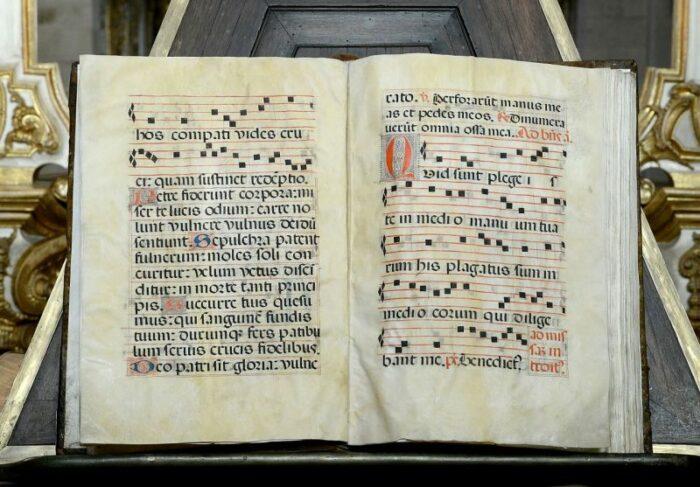 hos compati vides cru
ci: quam sustinet redēptio.
Petre fiderunt corpora: mi
ser te lucis odium: carre no
lunt vulnere vulnus deidū
sentiunt. Sepulchra patent
fulnerum: moles soli con
cutitur: velum vetus disci
ditur: in morte tanti princi
pis. Succurre tuis quesu
mus: qui sanguinē fundis
tuum: durumqꝫ fers patibu
lum servis crucis fidelibus.
Deo patri sit gloria: vulne
rato. ℣. Perforarūt manus me
as et pedes meos. ℟. Dinumera
verūt omnia ossa mea. Ad
Quid sunt plege is
te in medio manuum tua
rum his plagatus sum in
medio eorum qui dilige
bant me. ps. Benedictꝰ.
ad mis
saz in
troitꝰ.